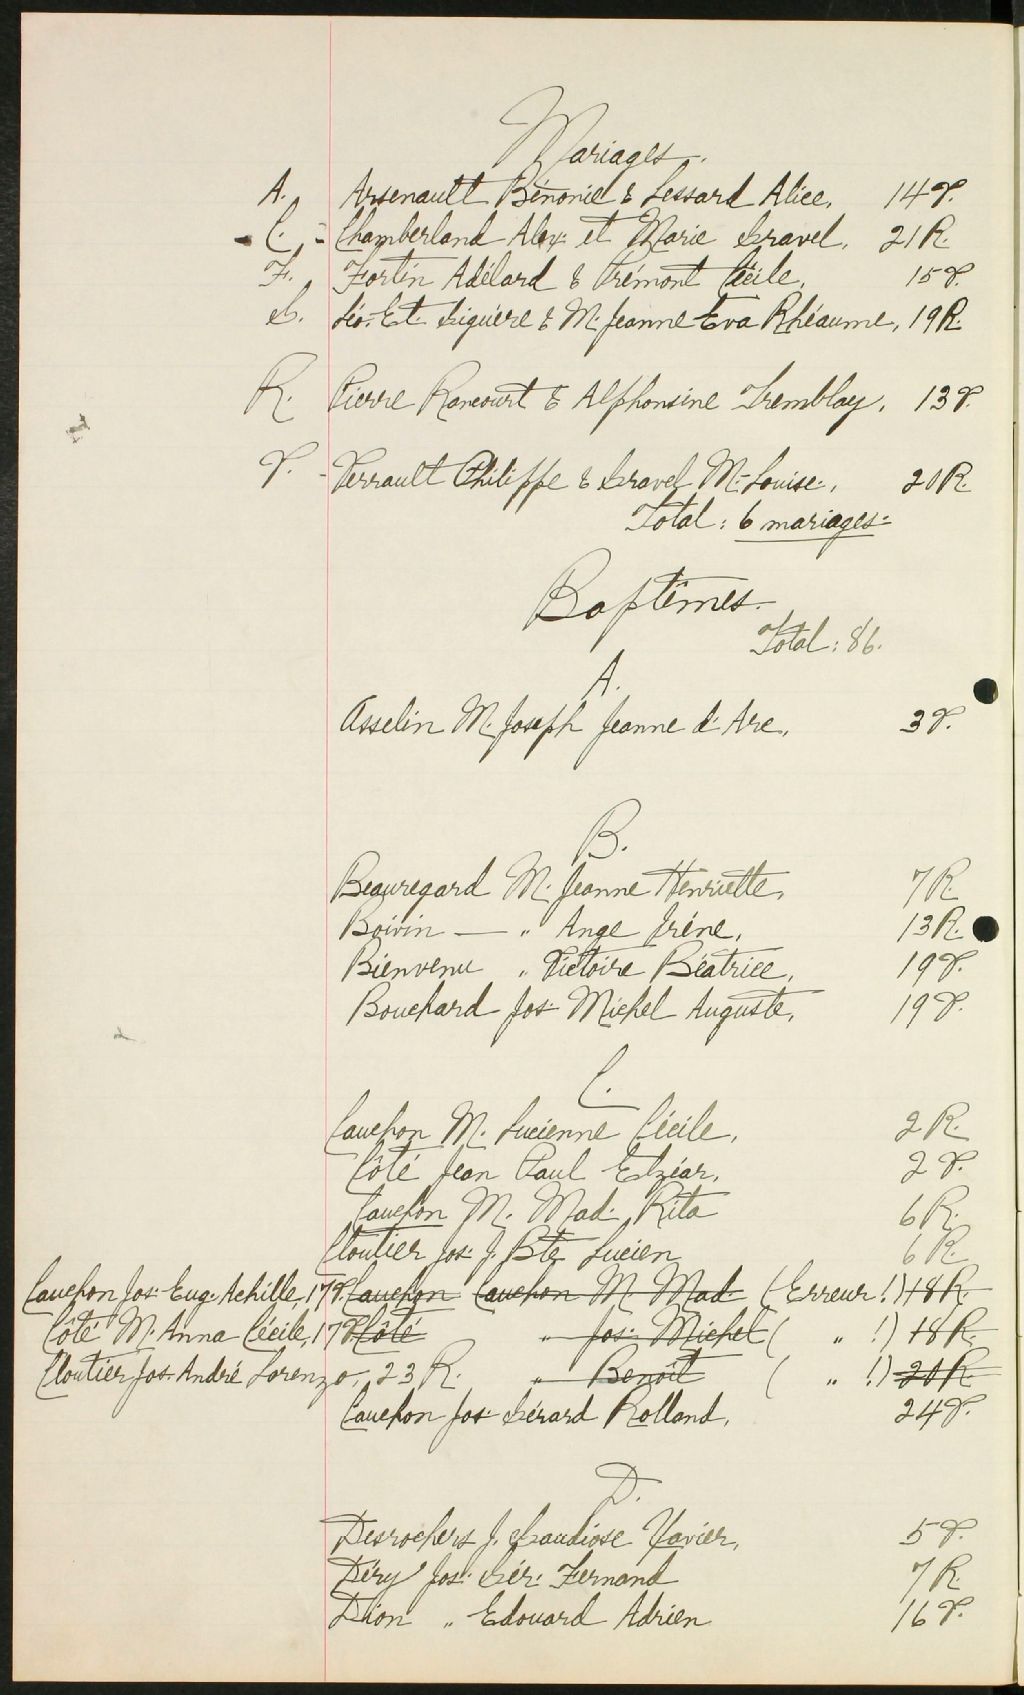 Mariages.
A. Arsenault Bénonie & Lessard Alice, 14 V.
- C. - Chamberland Alex. et Marie Gravel, 21 R.
F. Fortin Adélard & Trémont Cécile, 15 V.
G. Léo-Et. Giguère & M. Jeanne Eva Rhéaume, 19 R.
R. Pierre Rancourt & Alphonsine Tremblay, 13 V.
V. - Verrault Philippe & Gravel M.-Louise, 20 R.
Total : 6 mariages.
Baptêmes.
Total : 86.
A.
Asselin M. Joseph Jeanne d'Arc, 3 V.
B.
Beauregard M. Jeanne Henriette, 7 R.
Boivin — „ Ange Irène, 13 R.
Bienvenu „ Victoire Béatrice, 19 V.
Bouchard Jos. Michel Auguste, 19 V.
C.
Cauchon M. Lucienne Cécile, 2 R.
Côté Jean Paul Elzéar, 2 V.
Cauchon M. Mad. Rita 6 R.
Cloutier Jos. J. Bte Lucien 6 R.
Cauchon Jos. Eug. Achille, 17 V. Cauchon Cauchon M. Mad. (Erreur !) 18 R.
Côté M. Anna Cécile, 17 V. Côté „ Jos. Michel ( „ !) 18 R.
Cloutier Jos. André Lorenzo, 23 R. „ Benoît ( „ !) 20 R.
Cauchon Jos. Gérard Rolland, 24 V.
D.
Desrochers J. Gaudiose Xavier, 5 V.
Déry Jos. Gér. Fernand 7 R.
Dion „ Edouard Adrien 16 V.